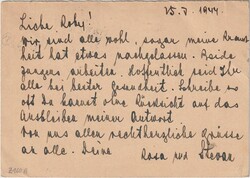 25.3.1944.
Liebe Roky!
Wir sind alle wohl, sogar meine Krank
heit hat etwas nachgelassen. Beide
jungens arbeiten, hoffentlich seid Ihr
alle bei bester gesundheit. Schreibe so
oft du kannst ohne Rücksicht auf das
Ausbleiben meiner Antwort.
Von uns allen recht herzliche grüsse
an alle. Deine
Rosa und Stevan